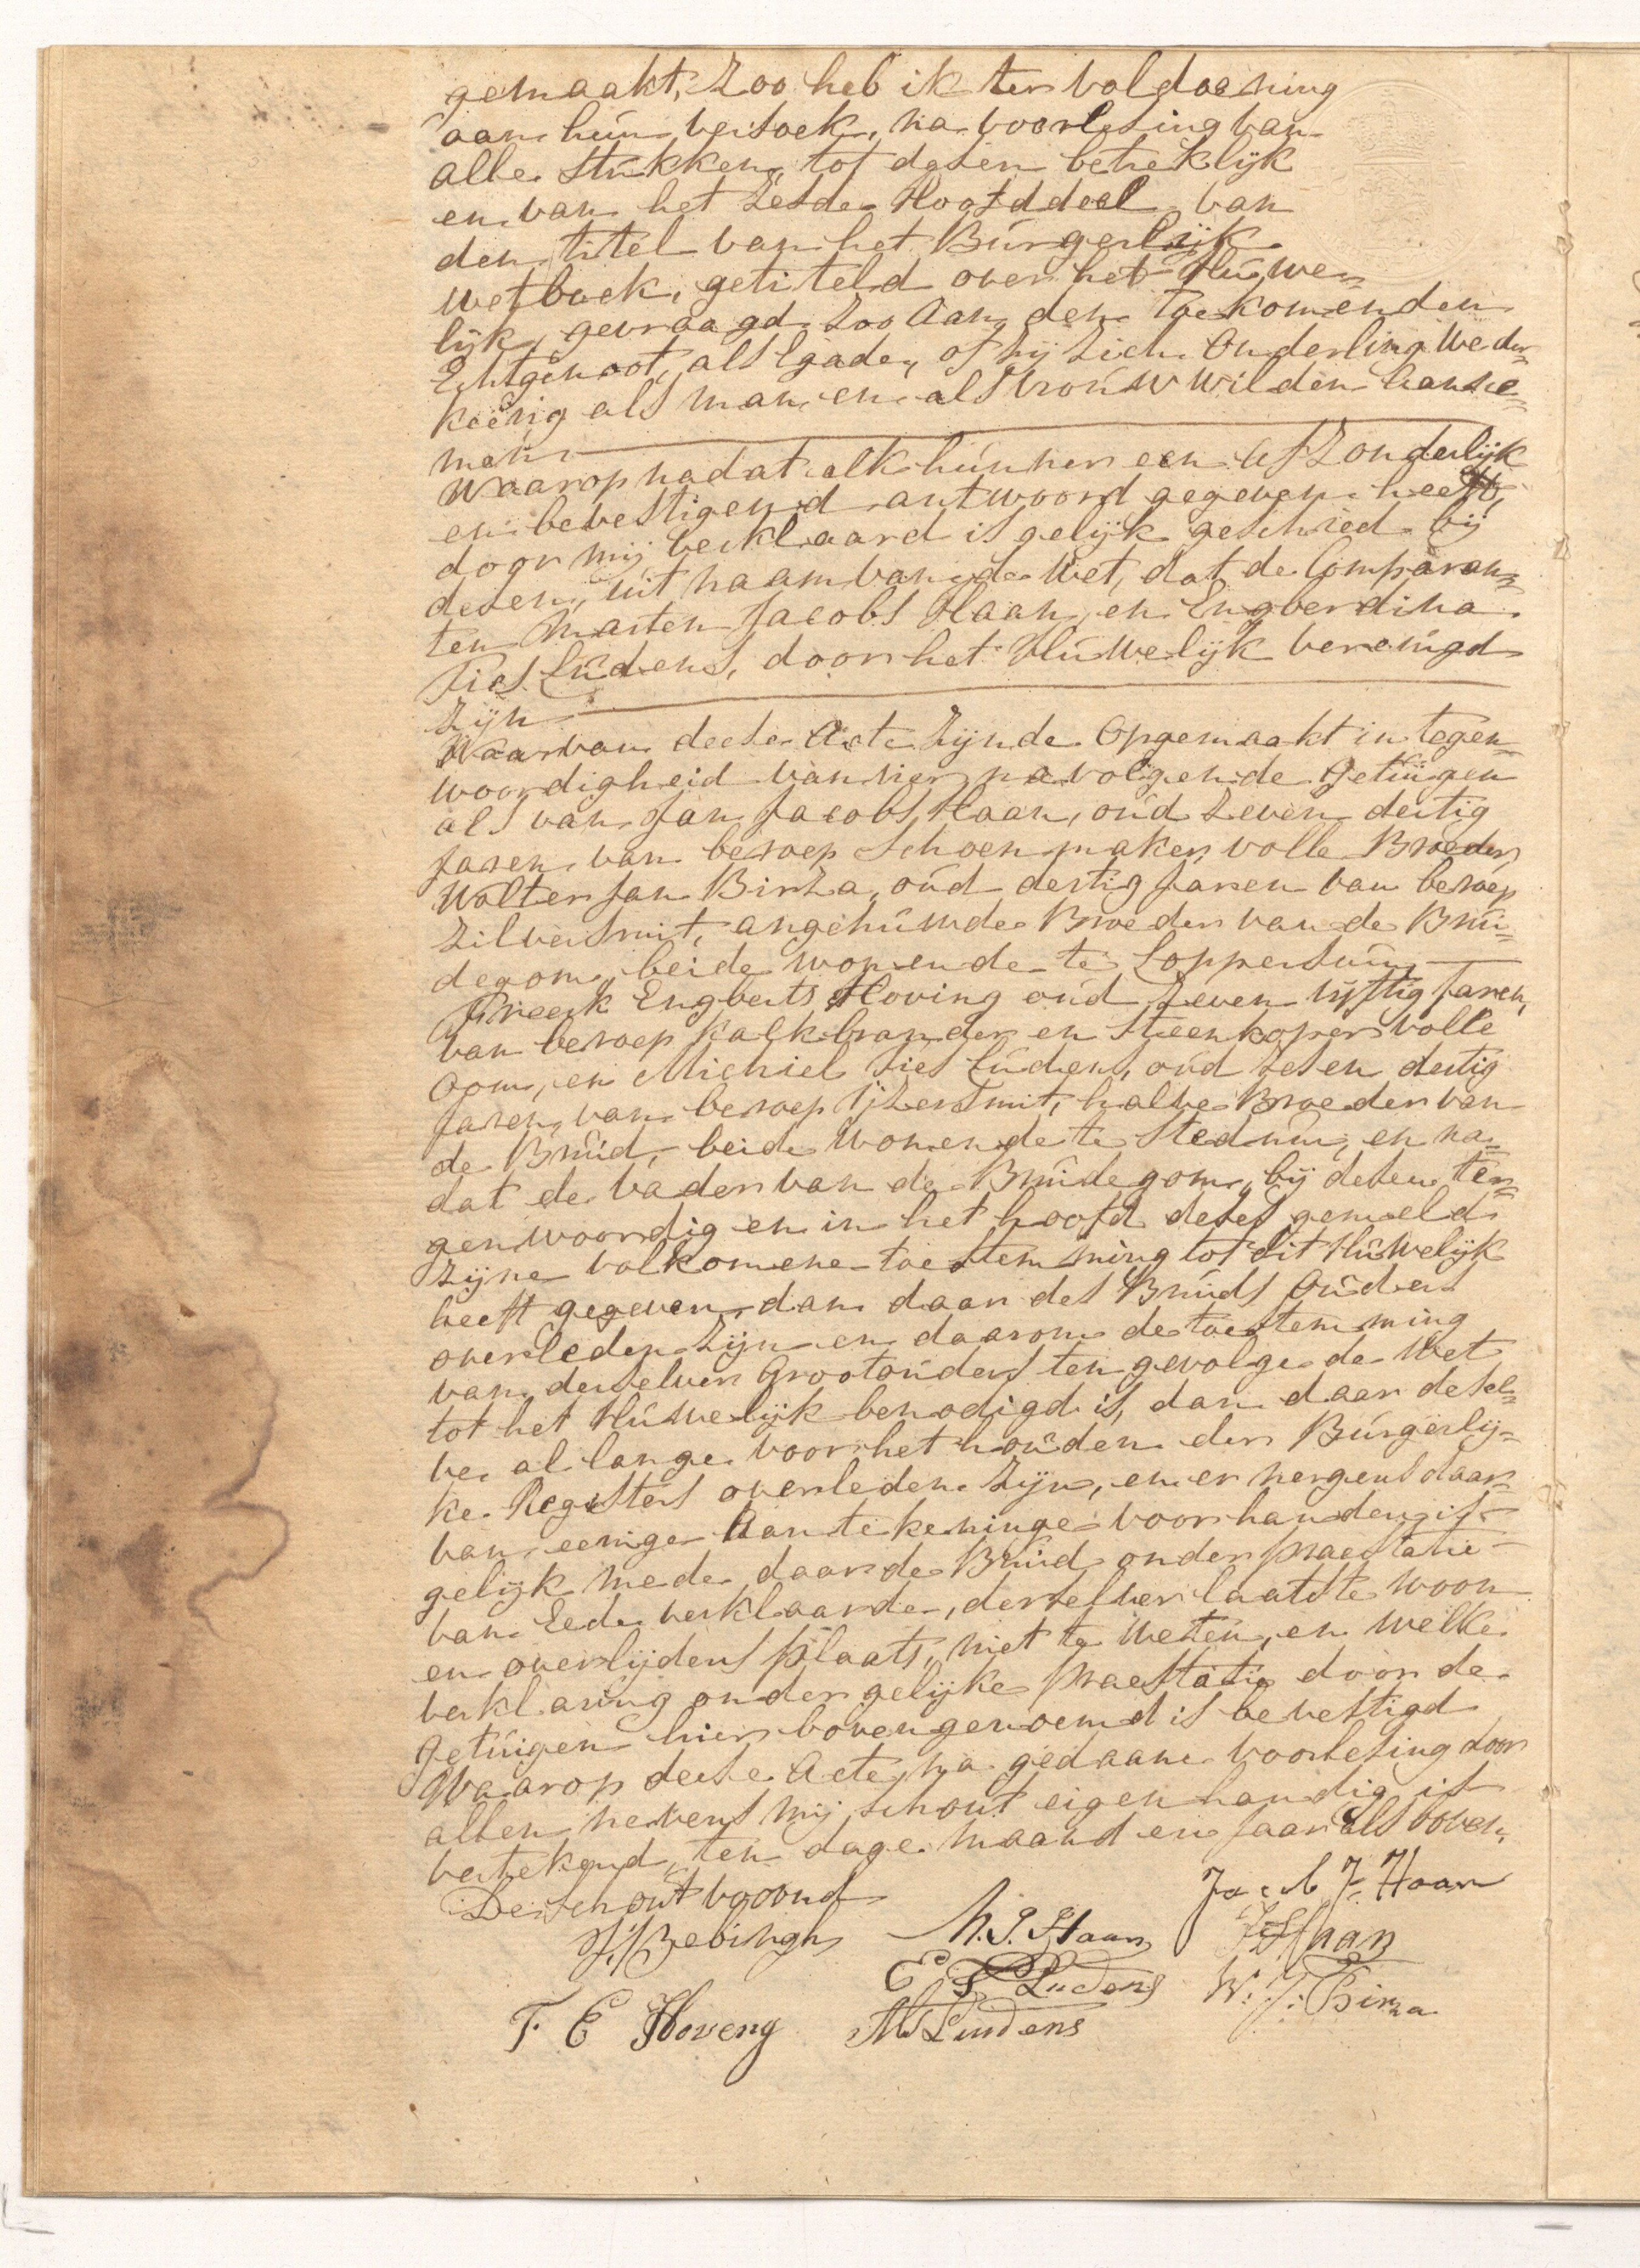 gemaakt, Zoo heb ik ter voldoening
aan hun versoek, na voorlesing van
alle stukken tot desen betreklijk
en van het Zesde Hoofddeel van
den titel van het Burgerlijk
wetboek, getiteld over het Huwe-
lijk, gevraagd Zoo aan den toekomenden
Echtgenoot, als Egade, of hij zich onderling weder-
keerig als man en als vrouw wilden aanne-
men
Waarop nadat elk hunner een afzonderlijk
en bevestigend antwoord gegeven heeft,
door mij verklaard is gelijk geschied bij
desen, uit naam van de Wet, dat de Comparan-
ten Marten Jacobs Haan, en Engberdina
Sies Ludens, door het Huwelijk verenigd
Zijn
Waarvan deese Acte Zijnde Opgemaakt in tegen-
woordigheid van vier navolgende Getuigen
als van Jan Jacobs Haan, oud Zeven dertig
Jaren van beroep Schoenmaker volle Broeder,
Wolter Jan Birza, oud dertig Jaren van beroep
Zilversmit, angehuwde Broeder van de Brui-
degom, beide wonende te Loppersum
Freerk Engberts Hoving oud Zeven vijftig Jaren,
van beroep Kalkbrander en Steenkoper volle
Oom, en Michiel Sies Ludens, oud zesen dertig
Jaren, van beroep IJzersmit, halve Broeder van
de Bruid, beide wonende te Stedum, en na-
dat de vader van de Bruidegom, bij desen te-
genwoordig en in het hoofd deses gemeld
Zijne volkomene toestemming tot dit Huwelijk
heeft gegeven, dan daar des Bruids Ouders
overleden Zijn en daarom de toestemming
van derselver Grootouders ten gevolge de Wet
tot het Huwelijk benodigd is, dan daar desel-
ve al lange voor het houden der Burgerlij-
ke Registers overleden Zijn, en er nergens daar-
van eenige Aantekeninge voorhanden is
gelijk mede daar de Bruid onder praestatie
van Eede verklaarde, derselver laatste woon
en overlijdens plaats, niet te weten, en welke
verklaring onder gelijke praestatie door de
Getuigen hier boven genoemd is bevestigd
Waarop deese Acte na gedaane voorlesing door
allen nevens mij Schout eigenhandig is
vertekend, ten dage maand en Jaar als boven,
De Schout voornd
Jacob J. Haan
M. J. Haan
J J Haan
E S Ludens
W. J. Birza
F. E Hoveng
M S Luudens